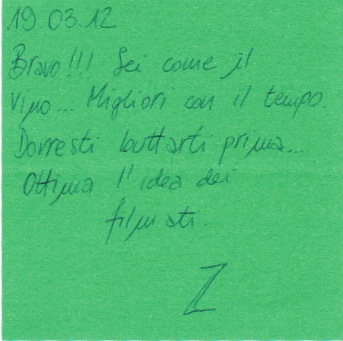 19.03.12
Bravo!!! Sei come il
vino... Migliori con il tempo.
Dovresti buttarti prima...
Ottima l'idea dei
filmati.
Z